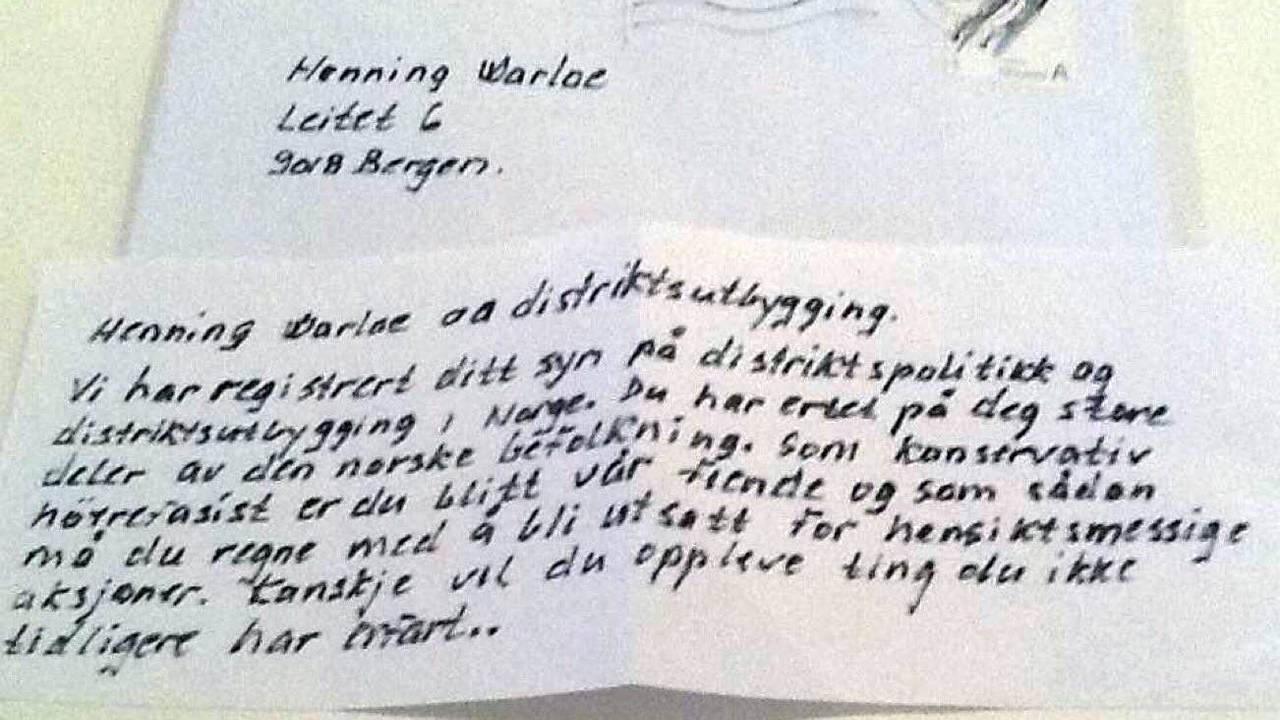 Henning Warloe
Leitet 6
9018 Bergen.
Henning Warloe og distriktsutbygging.
Vi har registrert ditt syn på distriktspolitikk og
distriktsutbygging i Norge. Du har ertet på deg store
deler av den norske befolkning. Som konservativ
høyrefasist er du blitt vår fiende og som sådan
må du regne med å bli utsatt for hensiktsmessige
aksjoner. Kanskje vil du oppleve ting du ikke
tidligere har erfart..